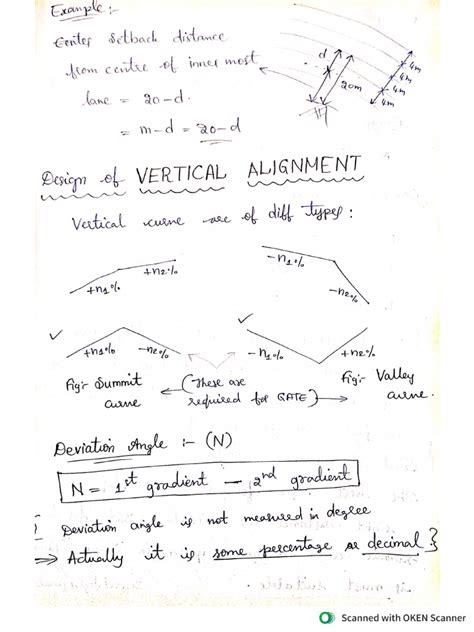 Example :-
Center Setback distance
from centre of inner most
lane = 20-d.
= m-d = 20-d
d
20m
4m
4m
4m
4m
Design of VERTICAL ALIGNMENT
Vertical curve are of diff types :
+n1% +n2%
-n1% -n2%
+n1% -n2%
-n1% +n2%
Fig:- Summit curve
(These are required for GATE)
Fig:- Valley curve.
Deviation Angle :- (N)
N = 1st gradient - 2nd gradient
Deviation angle is not measured in degree
⇒ Actually it is some percentage or decimal }
Scanned with OKEN Scanner